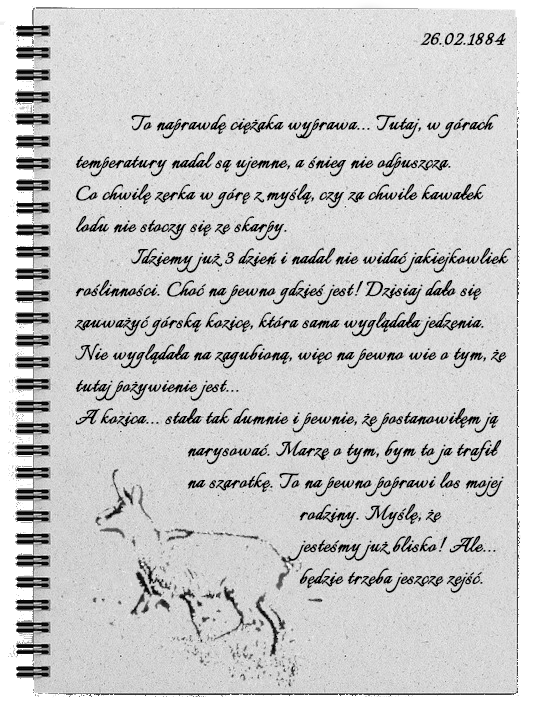 26.02.1884
To naprawdę ciężaka wyprawa... Tutaj, w górach
temperatury nadal są ujemne, a śnieg nie odpuszcza.
Co chwilę zerka w górę z myślą, czy za chwile kawałek
lodu nie stoczy się ze skarpy.
Idziemy już 3 dzień i nadal nie widać jakiejkowliek
roślinności. Choć na pewno gdzieś jest! Dzisiaj dało się
zauważyć górską kozicę, która sama wyglądała jedzenia.
Nie wyglądała na zagubioną, więc na pewno wie o tym, że
tutaj pożywienie jest...
A kozica... stała tak dumnie i pewnie, że postanowiłem ją
narysować. Marzę o tym, bym to ja trafił
na szarotkę. To na pewno poprawi los mojej
rodziny. Myślę, że
jesteśmy już blisko! Ale...
będzie trzeba jeszcze zejść.